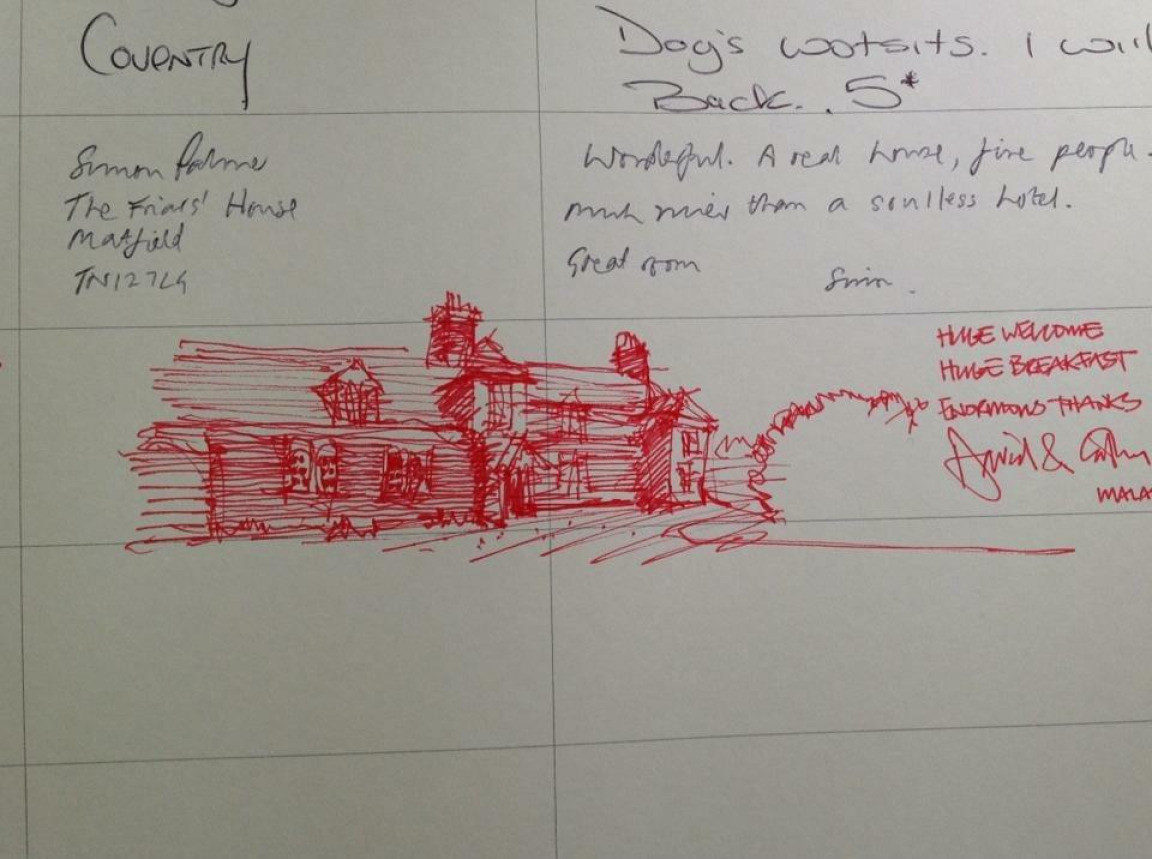 COVENTRY
Dog's wotsits. I will
Back. . 5*
Simon Palmer
The Friars' House
Matfield
TN12 7LG
Wonderful. A real house, fine people.
much nicer than a soulless hotel.
Great room
Simon.
HUGE WELCOME
HUGE BREAKFAST
ENORMOUS THANKS
David &